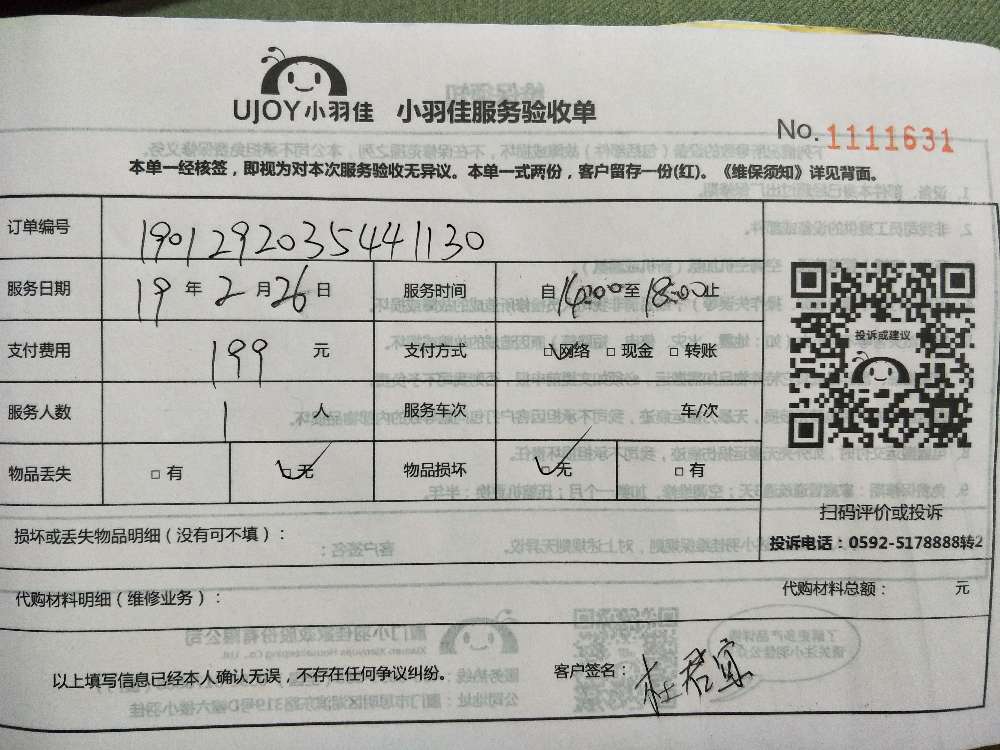 UJOY小羽佳 小羽佳服务验收单
No. 1111631
本单一经核签，即视为对本次服务验收无异议。本单一式两份，客户留存一份(红)。《维保须知》详见背面。
订单编号 190129203544 1130
服务日期 19 年 2 月 26 日 服务时间 自 14:00 至 18:00 止
支付费用 199 元 支付方式 ☑网络 □现金 □转账
服务人数 1 人 服务车次 车/次
物品丢失 □有 ☑无 物品损坏 ☑无 □有
投诉或建议
扫码评价或投诉
投诉电话：0592-5178888转2
损坏或丢失物品明细（没有可不填）：
代购材料明细（维修业务）： 代购材料总额： 元
以上填写信息已经本人确认无误，不存在任何争议纠纷。 客户签名：杜君宜